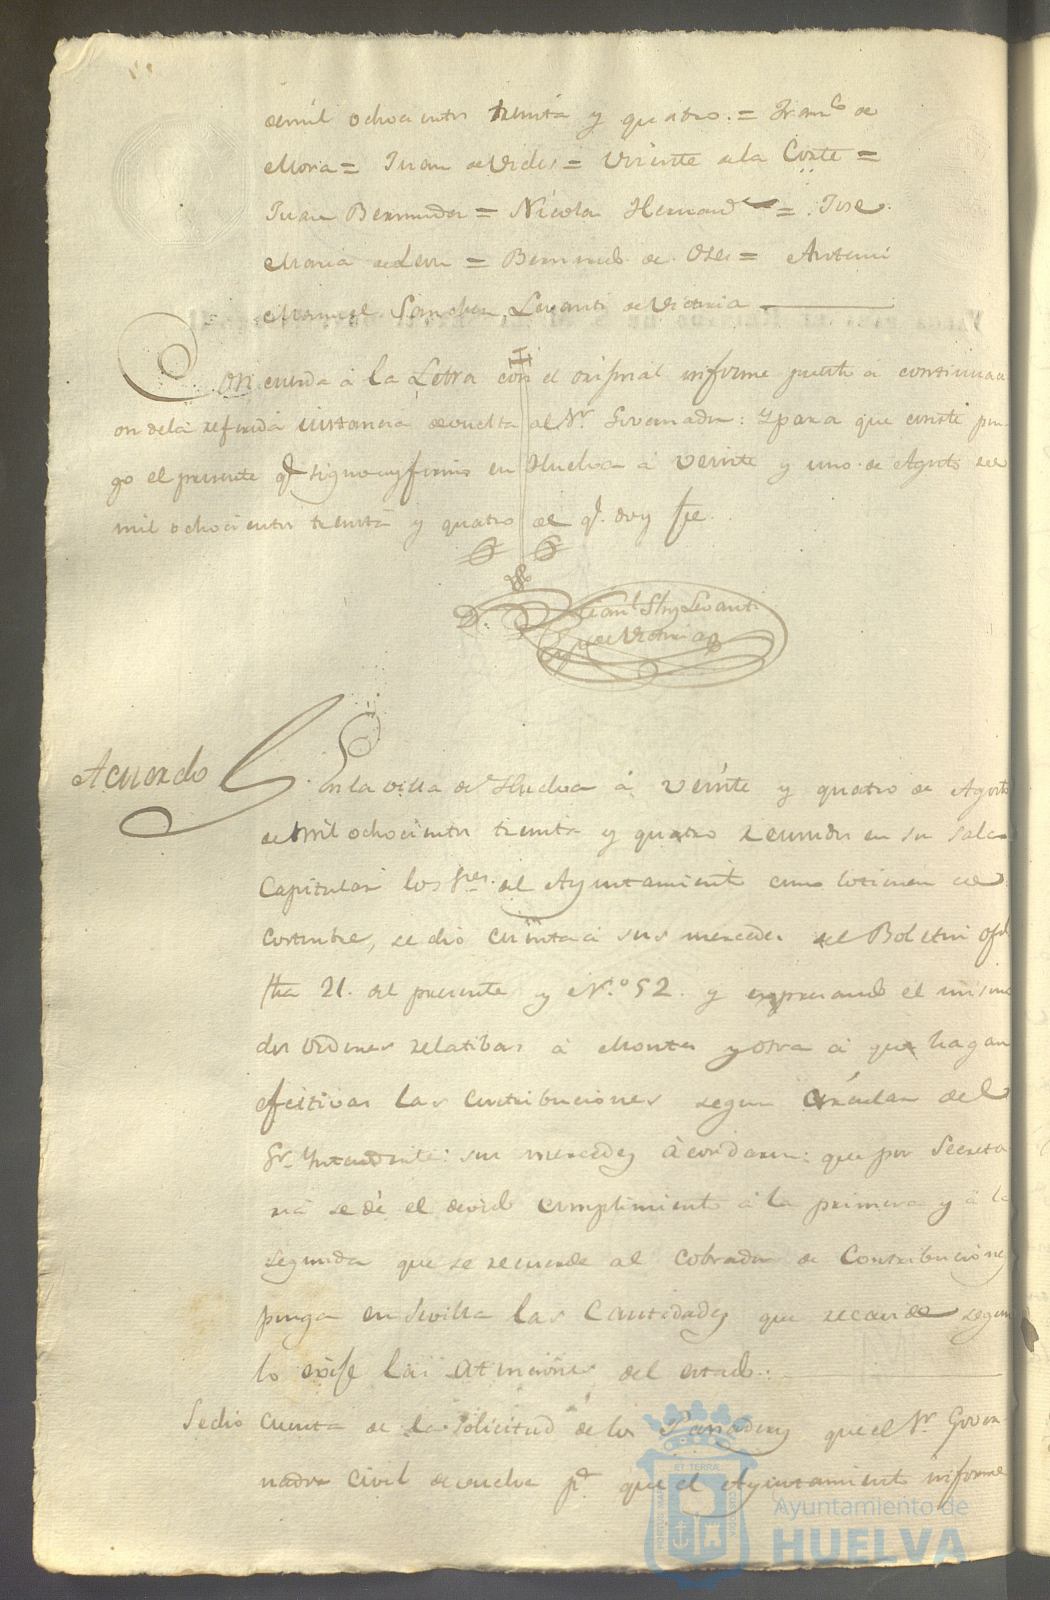 de mil ochocientos treinta y quatro. = Franco de
Mora = Juan de Vides = Vicente de la Corte =
Juan Bermudez = Nicolas Hernand = Jose
Maria de Leon = Bernardo de = Antoni
Manuel Sanchez, Levanti de Victoria
Concuerda á la Letra con el original informe puesto á continuaci
on de la referida instancia devuelta al Sr. Governador: Y para que conste pon
go el presente q.e signo y firmo en Huelva á veinte y uno de Agosto de
mil ochocientos treinta y quatro de q.e doy fee
Man.l Shz Levanti
de Victoria
Acuerdo
En la villa de Huelva á veinte y quatro de Agosto
de mil ochocientos treinta y quatro reunidos en su sala
Capitular los Sres. del Ayuntamiento como lo tienen de
costumbre, se dio cuenta á sus mercedes del Boletin ofl
fha 21. del presente y N.o 52. y expresando el mismo
dos ordenes relatibas á Montes y otra á que hagan
efectivas las contribuciones segun circular del
Sr. Yntendente: sus mercedes acordaron: que por Secreta
ria se dé el devido cumplimiento á la primera y á la
segunda que se recuerde al Cobrador de Contribuciones
ponga en Sevilla las Cantidades que recaude segun
lo exije las atenciones del estado.
Se dio cuenta de la solicitud de los Panaderos que el Sr. Gover
nador Civil devuelve p.a que el Ayuntamiento informe
PORTUS MARIS
ET TERRAE
CUSTODIA
Ayuntamiento de
HUELVA